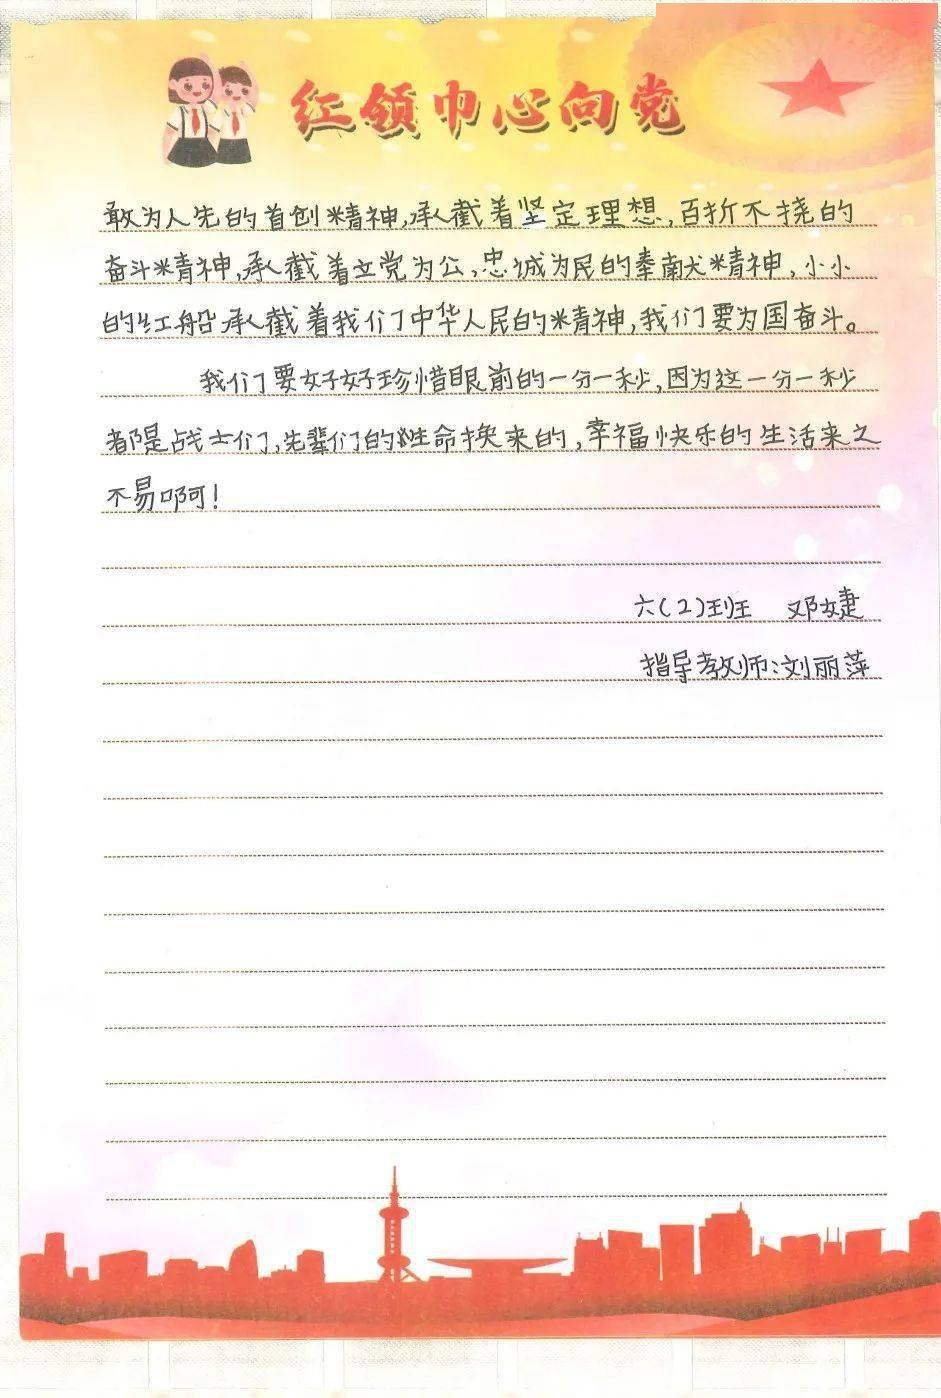 红领巾心向党
敢为人先的首创精神,承截着坚定理想,百折不挠的
奋斗精神,承截着立党为公,忠诚为民的奉献精神,小小
的红船承截着我们中华人民的精神,我们要为国奋斗。
我们要好好珍惜眼前的一分一秒,因为这一分一秒
都是战士们,先辈们的牲命换来的,幸福快乐的生活来之
不易啊!
六(2)班 邓婕
指导教师:刘丽萍